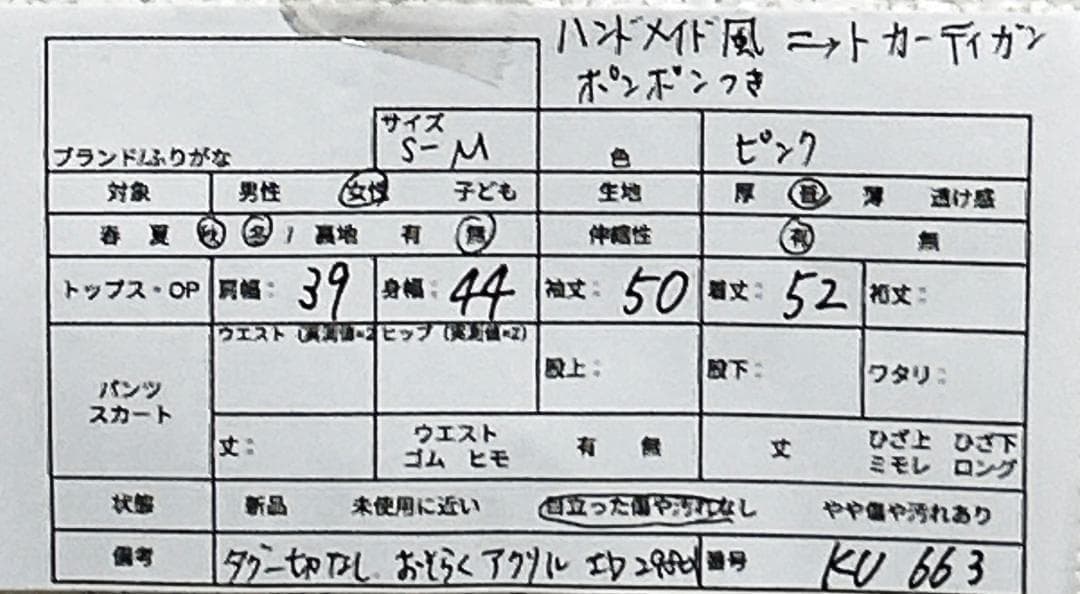 ハンドメイド風 ニット カーディガン
ポンポンつき
ブランド/ふりがな サイズ S-M 色 ピンク
対象 男性 女性 子ども 生地 厚 普 薄 透け感
春 夏 秋 冬 / 裏地 有 無 伸縮性 有 無
トップス・OP 肩幅: 39 身幅: 44 袖丈: 50 着丈: 52 裄丈:
パンツ スカート ウエスト (実測値×2 ヒップ (実測値×2) 股上: 股下: ワタリ:
丈: ウエスト ゴム ヒモ 有 無 丈 ひざ上 ひざ下 ミモレ ロング
状態 新品 未使用に近い 目立った傷や汚れなし やや傷や汚れあり
備考 タグ一切なし おそらくアクリル 番号 KU 663